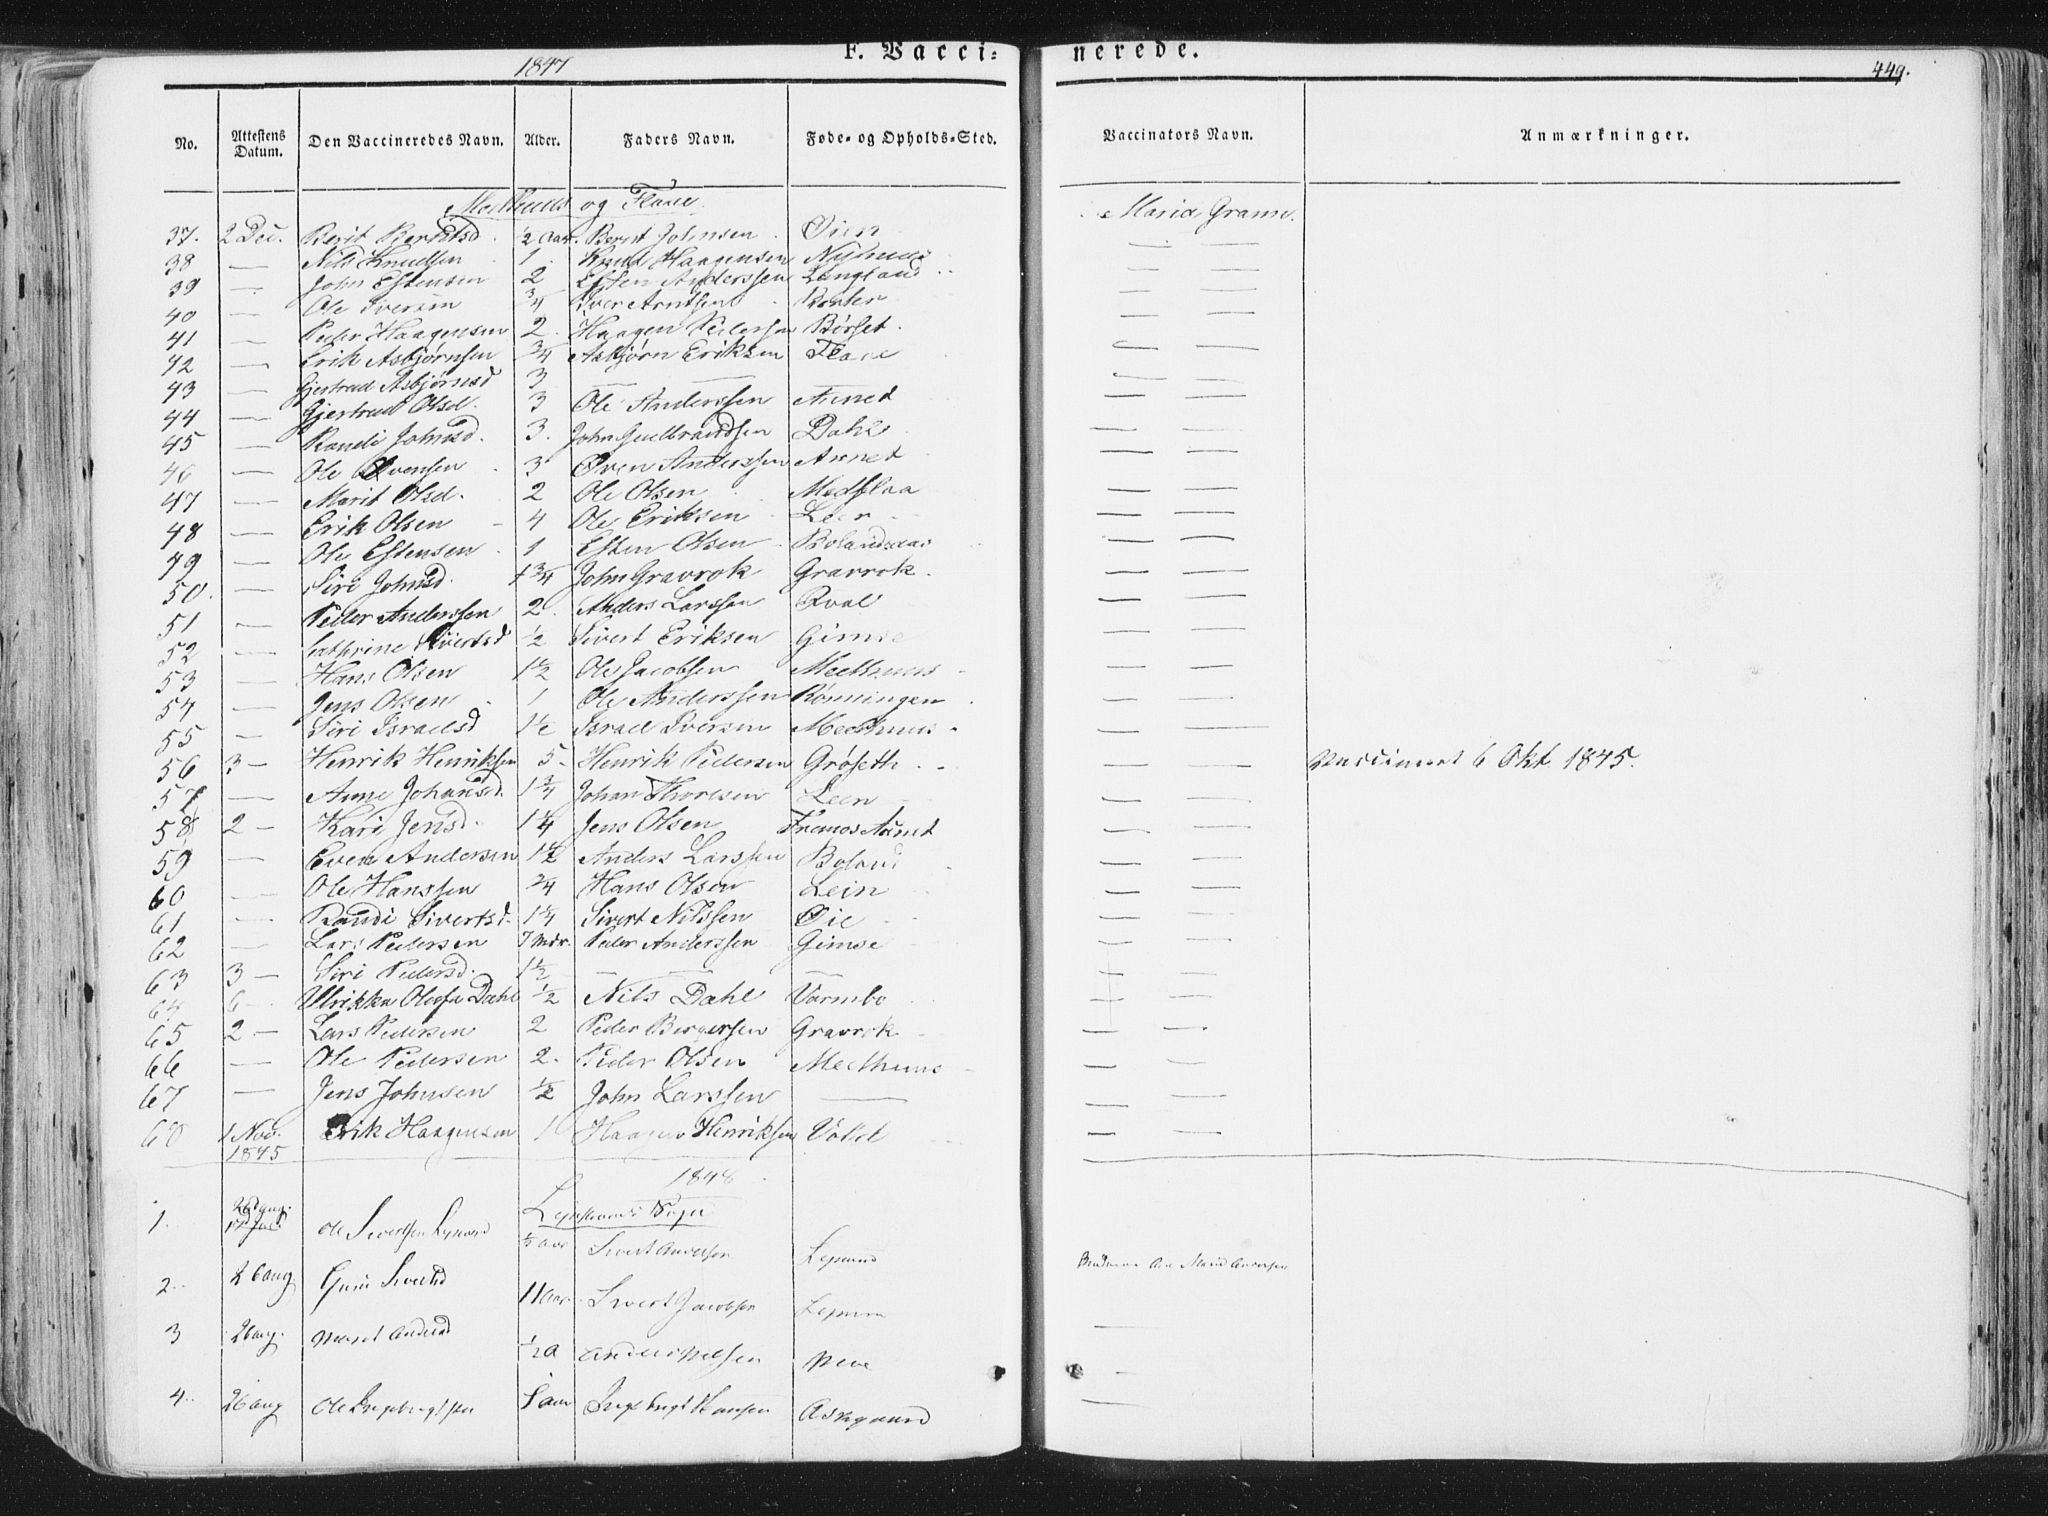 1847 F. Vacci= nerede. 449.
No. Attestens Datum. Den Vaccineredes Navn. Alder. Faders Navn. Føde- og Opholds-Sted. Vaccinators Navn. Anmærkninger.
Melhuus og Flaae. Maria Gram.
37. 2 Dec. Berit Berntsd. ½ Aar. Bernt Johnsen Øien — —
38 — Nils Knudsen 1. Knud Haagensen Nyhuus — —
39 — John Estensen 2 Esten Anderssen Langland — —
40 — Ole Iversen ¾ Iver Arntsen — —
41 — Peder Haagensen 2. Haagen Pedersen Børset. — —
42 — Erik Asbjørnsen ¾ Asbjørn Eriksen Flaae — —
43 — Gjertrud Asbjørnsd 3 — — — — —
44 — Gjertrud Olsd. 3 Ole Anderssen Aunet — —
45 — Randi Johnsd. 3. John Gulbrandsen Dahl — —
46 — Ole Øvensen 3 Øven Anderssen Aunet — —
47 — Marit Olsd. 2 Ole Olsen Medflaa — —
48 — Erik Olsen 4 Ole Eriksen Leer — —
49 — Ole Estensen 1 Esten Olsen Bolandsaas — —
50. — Siri Johnsd. 1¾ John Gravrok Gravrok. — —
51 — Peder Anderssen 2. Anders Larssen Qval — —
52 — Cathrine Sivertsd ½ Sivert Eriksen Gimse — —
53 — Hans Olsen 1½ Ole Jacobsen Meelhuus — —
54 — Jens Olsen 1 Ole Anderssen Rønningen — —
55 — Siri Israelsd 1½ Israel Iversen Meelhuus — —
56 3 — Henrik Henriksen 5 Henrik Pedersen Grøseth — — Vaccineret 6 Okt. 1845.
57 — Anne Johansd. 1¾ Johan Thoresen Leen — —
58 2 — Kari Jensd. 1¼ Jens Olsen Fremos Aunet — —
59 — Even Andersen 1½ Anders Larssen Boland — —
60 — Ole Hanssen ¾ Hans Olsen Lein — —
61 — Randi Sivertsd. 1¾ Sivert Nilssen Øie — —
62 — Lars Pedersen 7 Mdr. Peder Anderssen Gimse — —
63 3 — Siri Pedersd. 1½ — — — — —
64 6 — Ulrikka Olufa Dahl ½ Nils Dahl Varmbo — —
65 2 — Lars Pedersen 2 Peder Birgersen Gravrok. — —
66 — Ole Pedersen 2. Peder Olsen Meelhuus — —
67 — Jens Johnsen ½ John Larssen — — —
68 1 Nov. 1845 Erik Haagensen 1 Haagen Henriksen Vollet — —
1848
1. 26 aug. Ole Sivertsen ½ Aar Sivert Andersen
2. 26 aug. Guri Sivertsd 11 Aar Sivert Jacobsen
3 26 aug. Marit Andersd ½ A Anders Nilsen —
4. 26 aug Ole Ingebrigtsen 1 Aar Ingebrigt Hansen Askgaard —